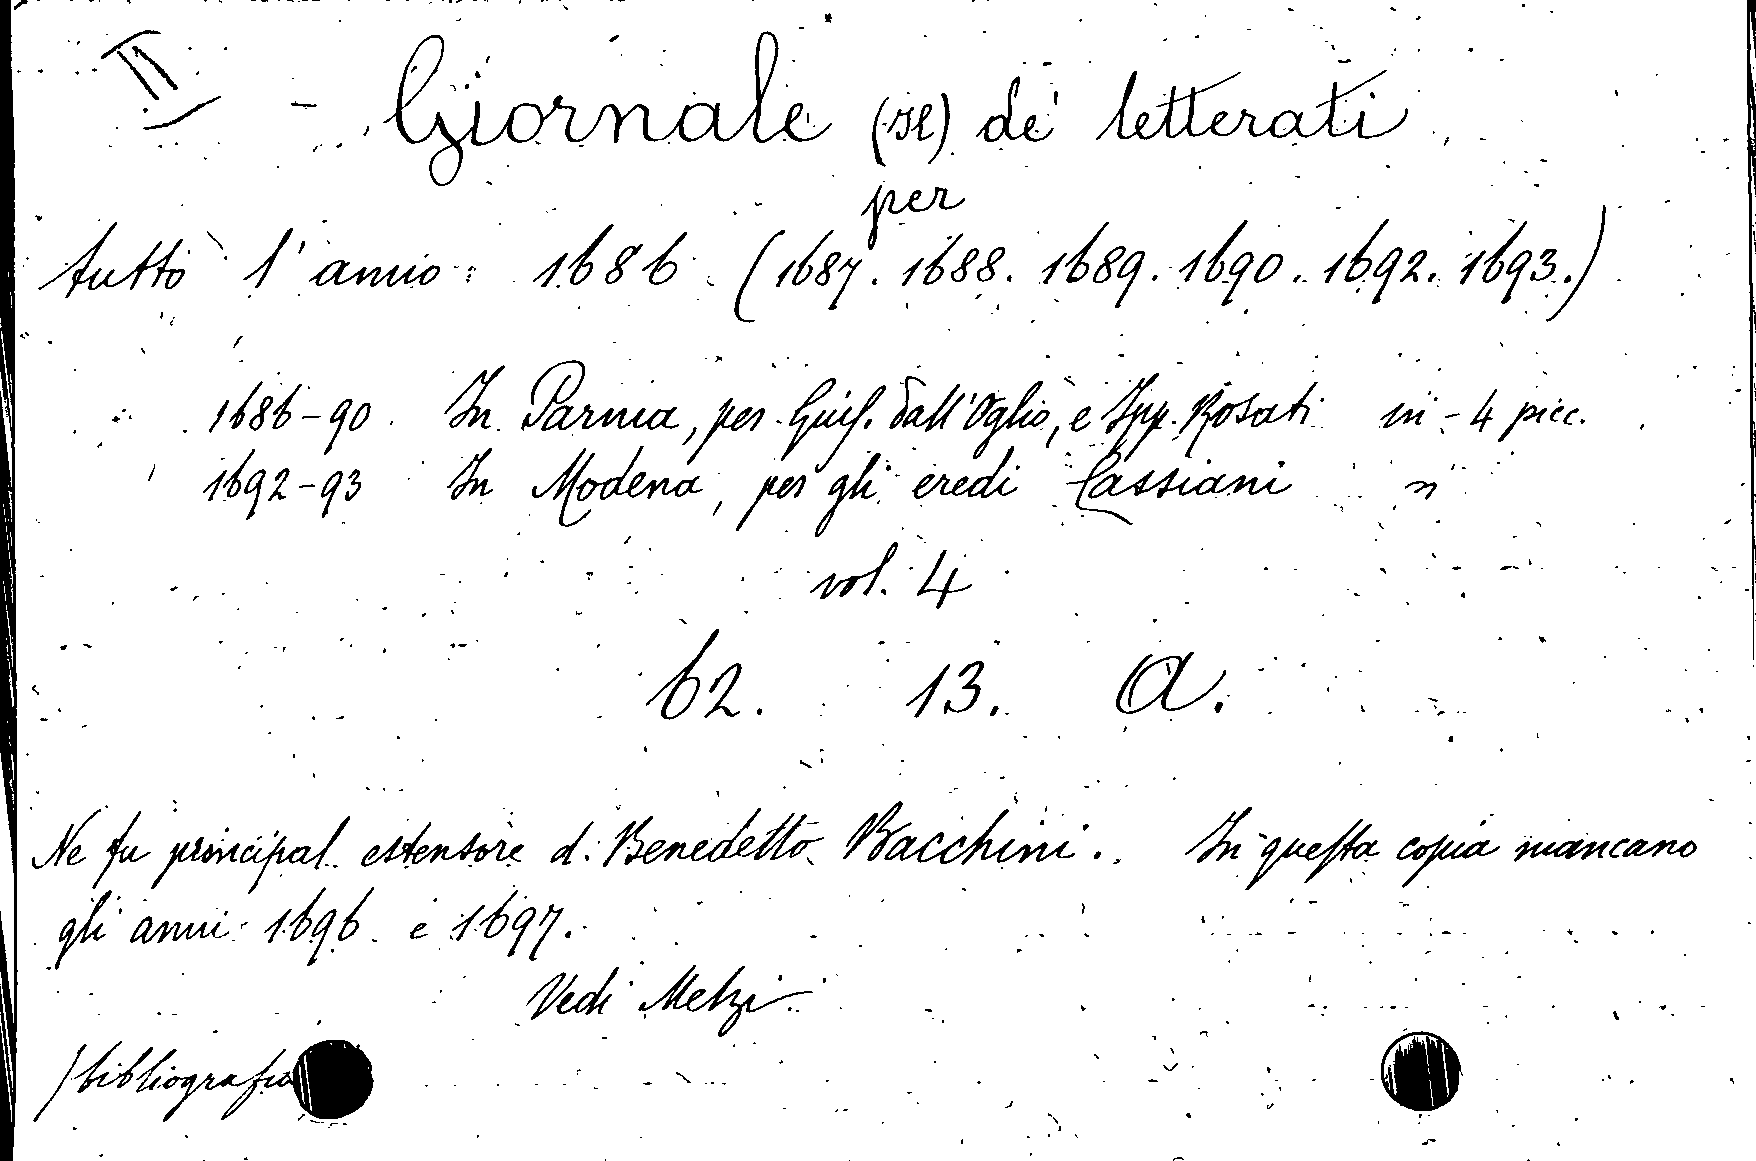 II - Giornale (Il) de' letterati
per
tutto l'anno 1686 (1687. 1688. 1689. 1690. 1692. 1693.)
1686-90 In Parma, per Gius. dall'Oglio, e Ipp. Rosati in-4 picc.
1692-93 In Modena, per gli eredi Cassiani "
vol. 4
62. 13. A.
Ne fu principal estensore d. Benedetto Bacchini. In questa copia mancano
gli anni 1696 e 1697.
Vedi Melzi
/bibliografia